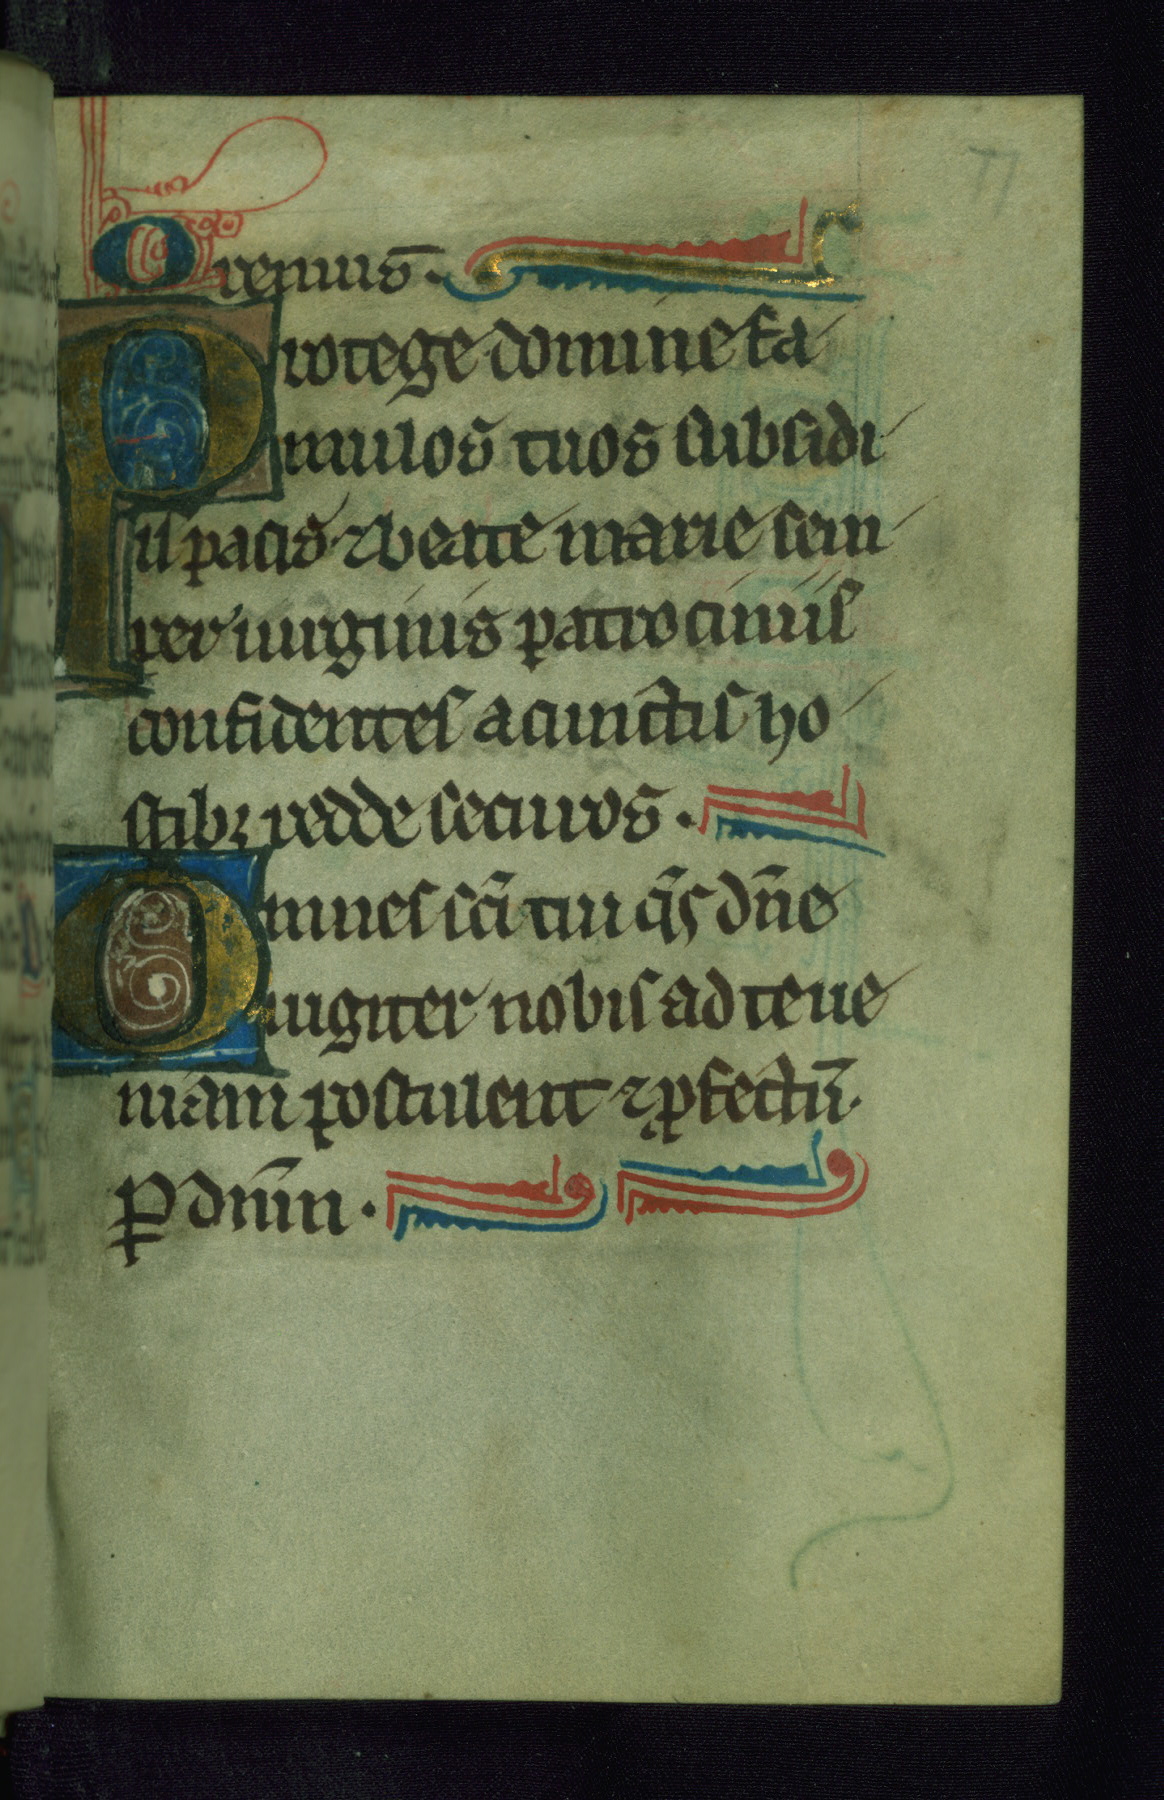 77
Oremus.
Protege domine fa
mulos tuos subsidi
is pacis ⁊ beate marie sem
per uirginis patrociniis
confidentes a cunctis ho
stibꝫ redde securos.
Omnes sc̄i tui q̄s dn̄e
iugiter nobis ad te ue
niam postulent ⁊ ꝓfectū.
P̲ dn̄m.